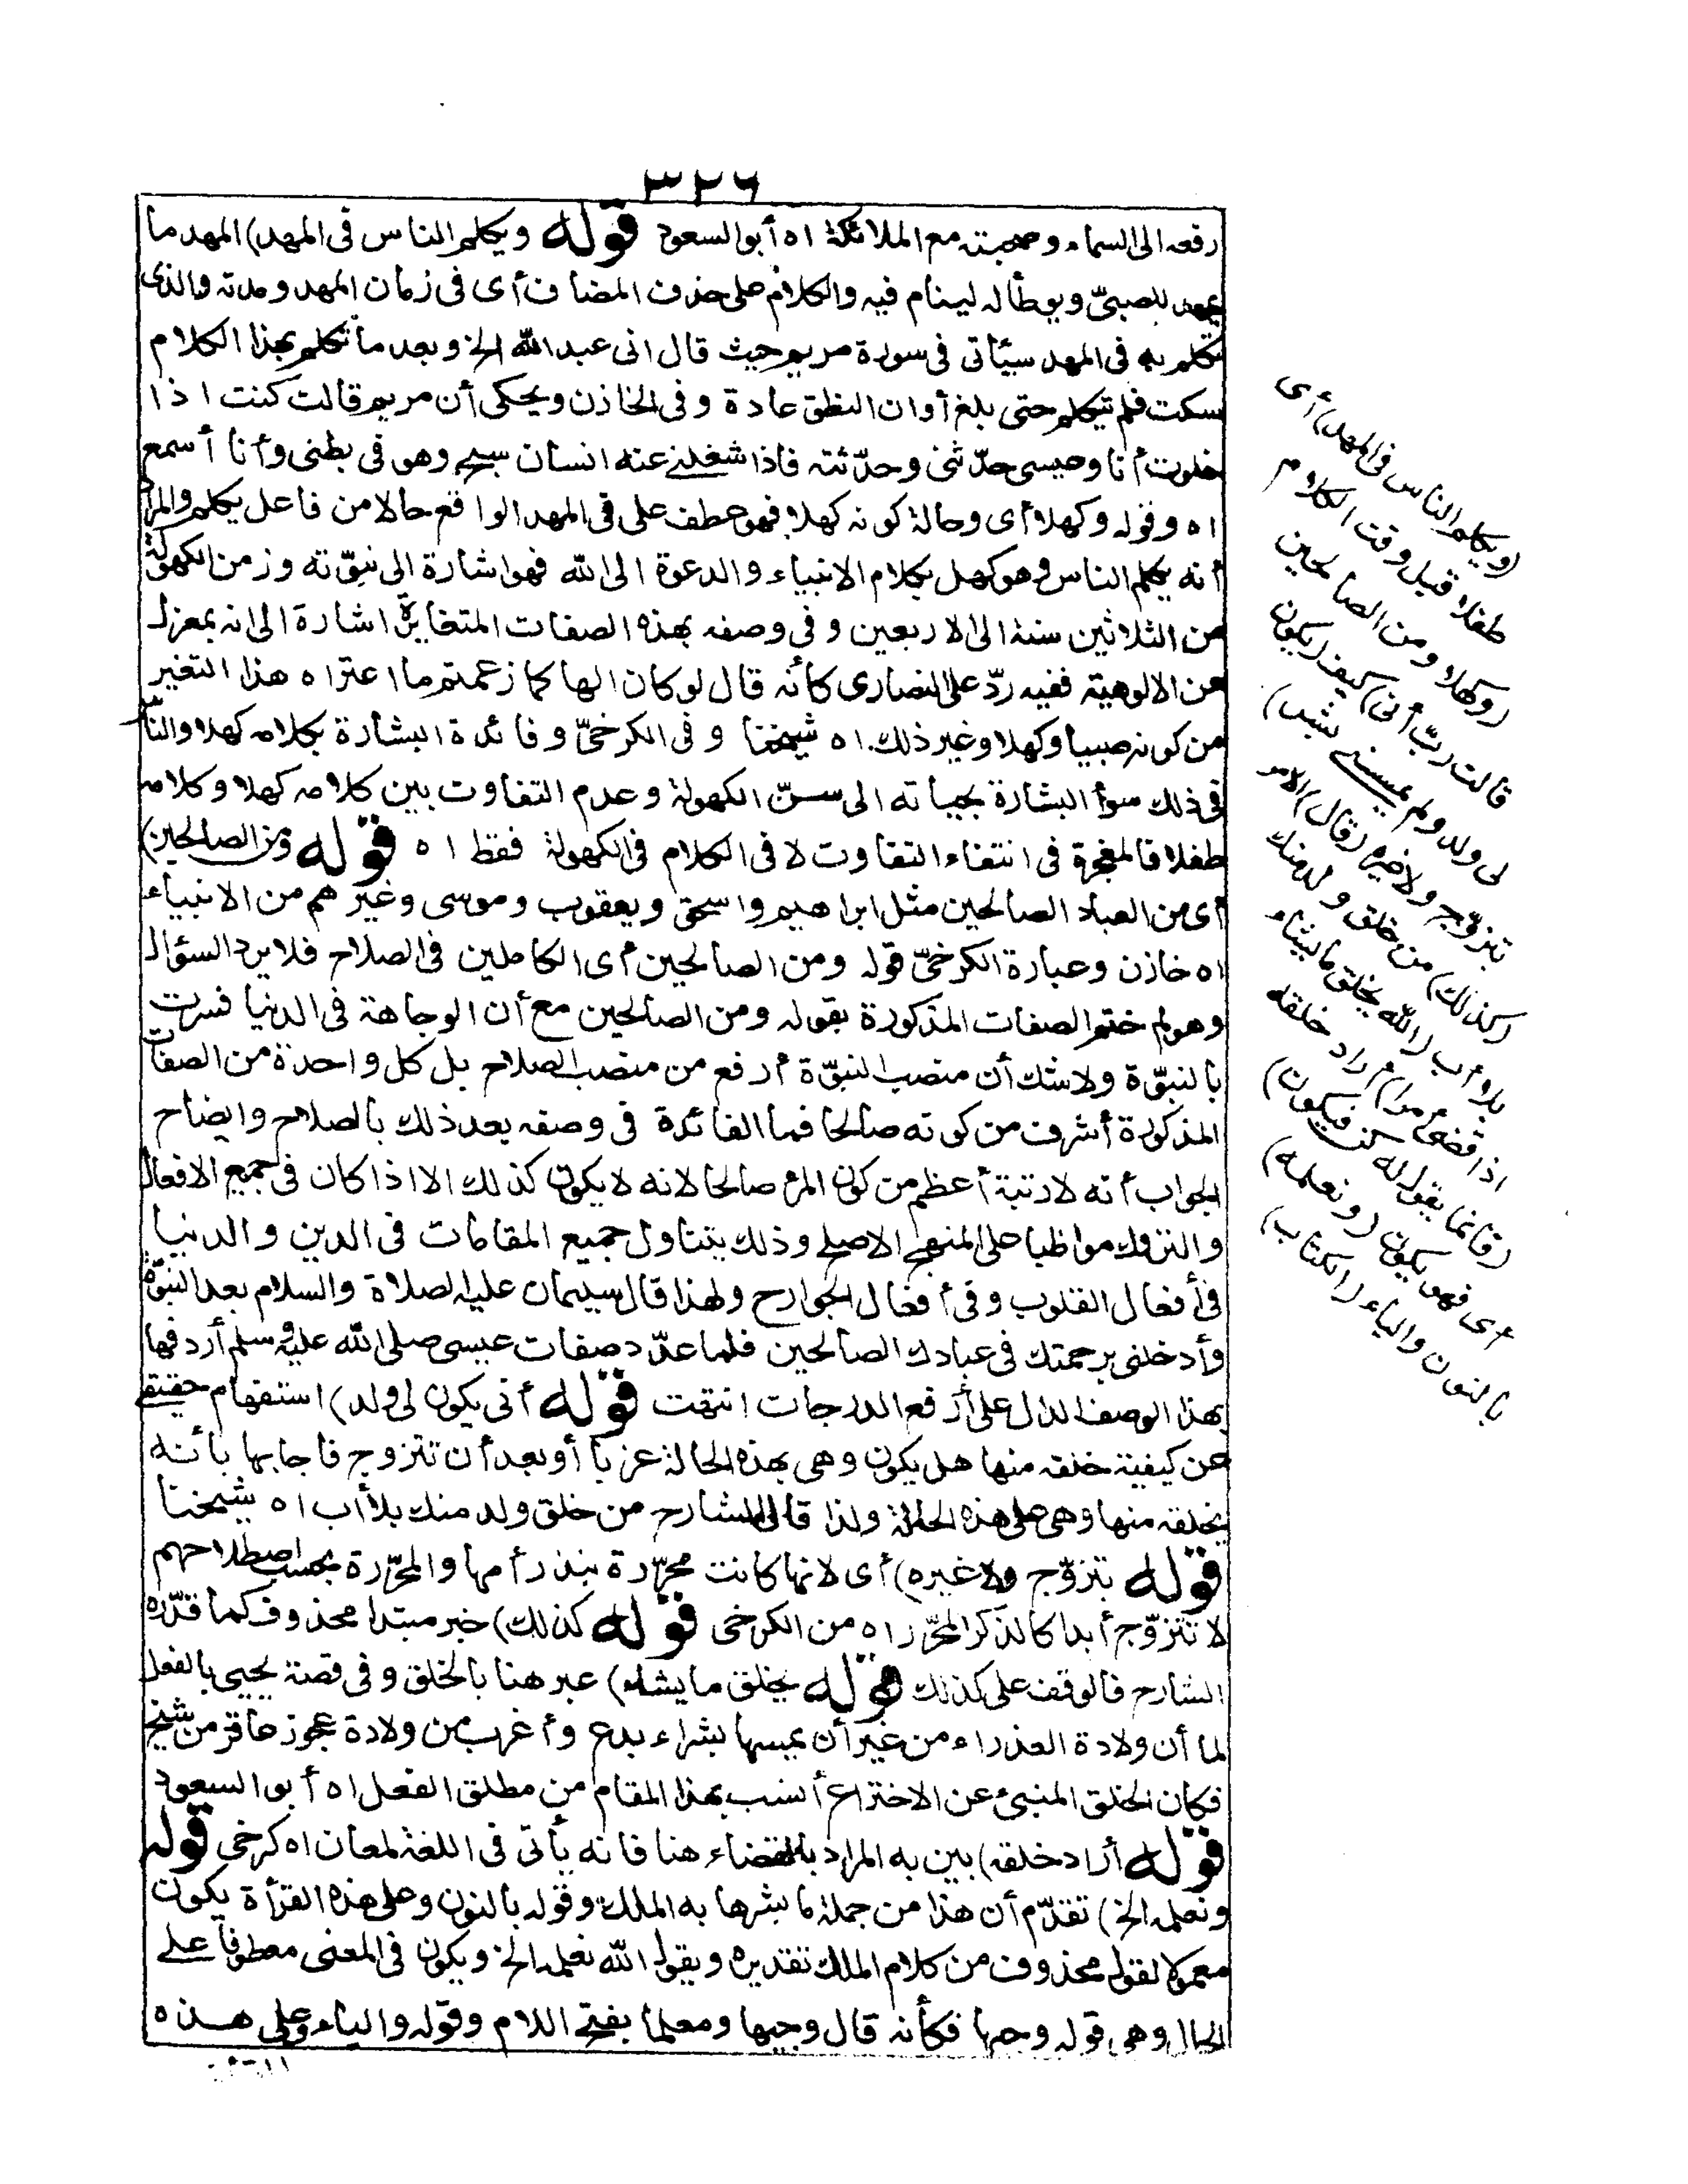 ٣٢٦
رفعه الى السماء وصحبته مع الملائكة اه أبوالسعود قوله ويكلم الناس فى المهد) المهد ما
يمهد للصبىّ ويوطأ له لينام فيه والكلام على حذف المضاف أى فى زمان المهد ومدته والذى
تكلم به فى المهد سيأتى فى سورة مريم حيث قال انى عبد الله الخ وبعد ما تكلم بهذا الكلام
سكت فلم يتكلم حتى بلغ أوان النطق عادة وفى الخازن ويحكى أن مريم قالت كنت اذا
خلوت أنا وعيسى حدّثنى وحدّثته فاذا شغلنى عنه انسان سبح وهو فى بطنى وأنا أسمع
اه وقوله وكهلا أى وحالة كونه كهلا فهو عطف على فى المهد الواقع حالا من فاعل يكلم والمراد
أنه يكلم الناس وهو كهل بكلام الانبياء والدعوة الى الله فهو اشارة الى نبوّته وزمن الكهولة
من الثلاثين سنة الى الاربعين وفى وصفه بهذه الصفات المتغايرة اشارة الى انه بمعزل
عن الالوهية ففيه ردّ على النصارى كأنه قال لو كان الها كما زعمتم ما اعتراه هذا التغير
من كونه صبيا وكهلا وغير ذلك. اه شيخنا وفى الكرخىّ وفائدة البشارة بكلامه كهلا والناس
فى ذلك سوأ البشارة بحياته الى سنّ الكهولة وعدم التفاوت بين كلامه كهلا وكلامه
طفلا فالمعجزة فى انتفاء التفاوت لا فى الكلام فى الكهولة فقط اه قوله ومن الصالحين)
أى من العباد الصالحين مثل ابراهيم واسحق ويعقوب وموسى وغيرهم من الانبياء
اه خازن وعبارة الكرخىّ قوله ومن الصالحين أى الكاملين فى الصلاح فلا يرد السؤال
وهو لم ختم الصفات المذكورة بقوله ومن الصالحين مع أن الوجاهة فى الدنيا فسرت
بالنبوّة ولا شك أن منصب النبوّة أرفع من منصب الصلاح بل كل واحدة من الصفات
المذكورة أشرف من كونه صالحا فما الفائدة فى وصفه بعد ذلك بالصلاح وايضاح
الجواب أنه لا رتبة أعظم من كون المرء صالحا لانه لا يكون كذلك الا اذا كان فى جميع الافعال
والتروك مواظبا على المنهج الاصلح وذلك يتناول جميع المقامات فى الدين والدنيا
فى أفعال القلوب وفى أفعال الجوارح ولهذا قال سليمان عليه الصلاة والسلام بعد النبوّة
وأدخلنى برحمتك فى عبادك الصالحين فلما عدّد صفات عيسى صلى الله عليه وسلم أردفها
بهذا الوصف الدال على أرفع الدرجات انتهت قوله أنى يكون لى ولد) استفهام حقيقى
عن كيفية خلقه منها هل يكون وهى بهذه الحالة عزبا أو بعد أن تتزوج فاجابها بأنه
يخلقه منها وهى على هذه الحالة ولذا قال الشارح من خلق ولد منك بلا أب اه شيخنا
قوله بتزوّج ولا غيره) أى لانها كانت محرّرة بنذر أمها والمحرّرة بحسب اصطلاحهم
لا تتزوّج أبدا كالذكر المحرّر اه من الكرخى قوله كذلك) خبر مبتدا محذوف كما قدّره
الشارح فالوقف على كذلك قوله يخلق ما يشاء) عبر هنا بالخلق وفى قصة يحيى بالفعل
لما أن ولادة العذراء من غير أن يمسها بشر أبدع وأغرب من ولادة عجوز عاقر من شيخ
فكان الخلق المنبئ عن الاختراع أنسب بهذا المقام من مطلق الفعل اه أبو السعود
قوله أراد خلقه) بين به المراد بالقضاء هنا فانه يأتى فى اللغة لمعان اه كرخى قوله
ونعلمه الخ) تقدّم أن هذا من جملة ما بشرها به الملك وقوله بالنون وعلى هذه القرأة يكون
معمولا لقول محذوف من كلام الملك تقديره ويقول الله نعلمه الخ ويكون فى المعنى معطوفا على
الحال وهى قوله وجيها فكأنه قال وجيها ومعلما بفتح اللام وقوله والياء وعلى هذه
(ويكلم الناس فى المهد) أى
طفلا قبل وقت الكلام
(وكهلا ومن الصالحين
قالت ربّ أنى) كيف (يكون
لى ولد ولم يمسسنى بشر)
بتزوّج ولا غيره (قال) الامر
(كذلك) من خلق ولد منك
بلا أب (الله يخلق ما يشاء
اذا قضى أمرا) أراد خلقه
(فانما يقول له كن فيكون)
أى فهو يكون (ونعلمه)
بالنون والياء (الكتاب)